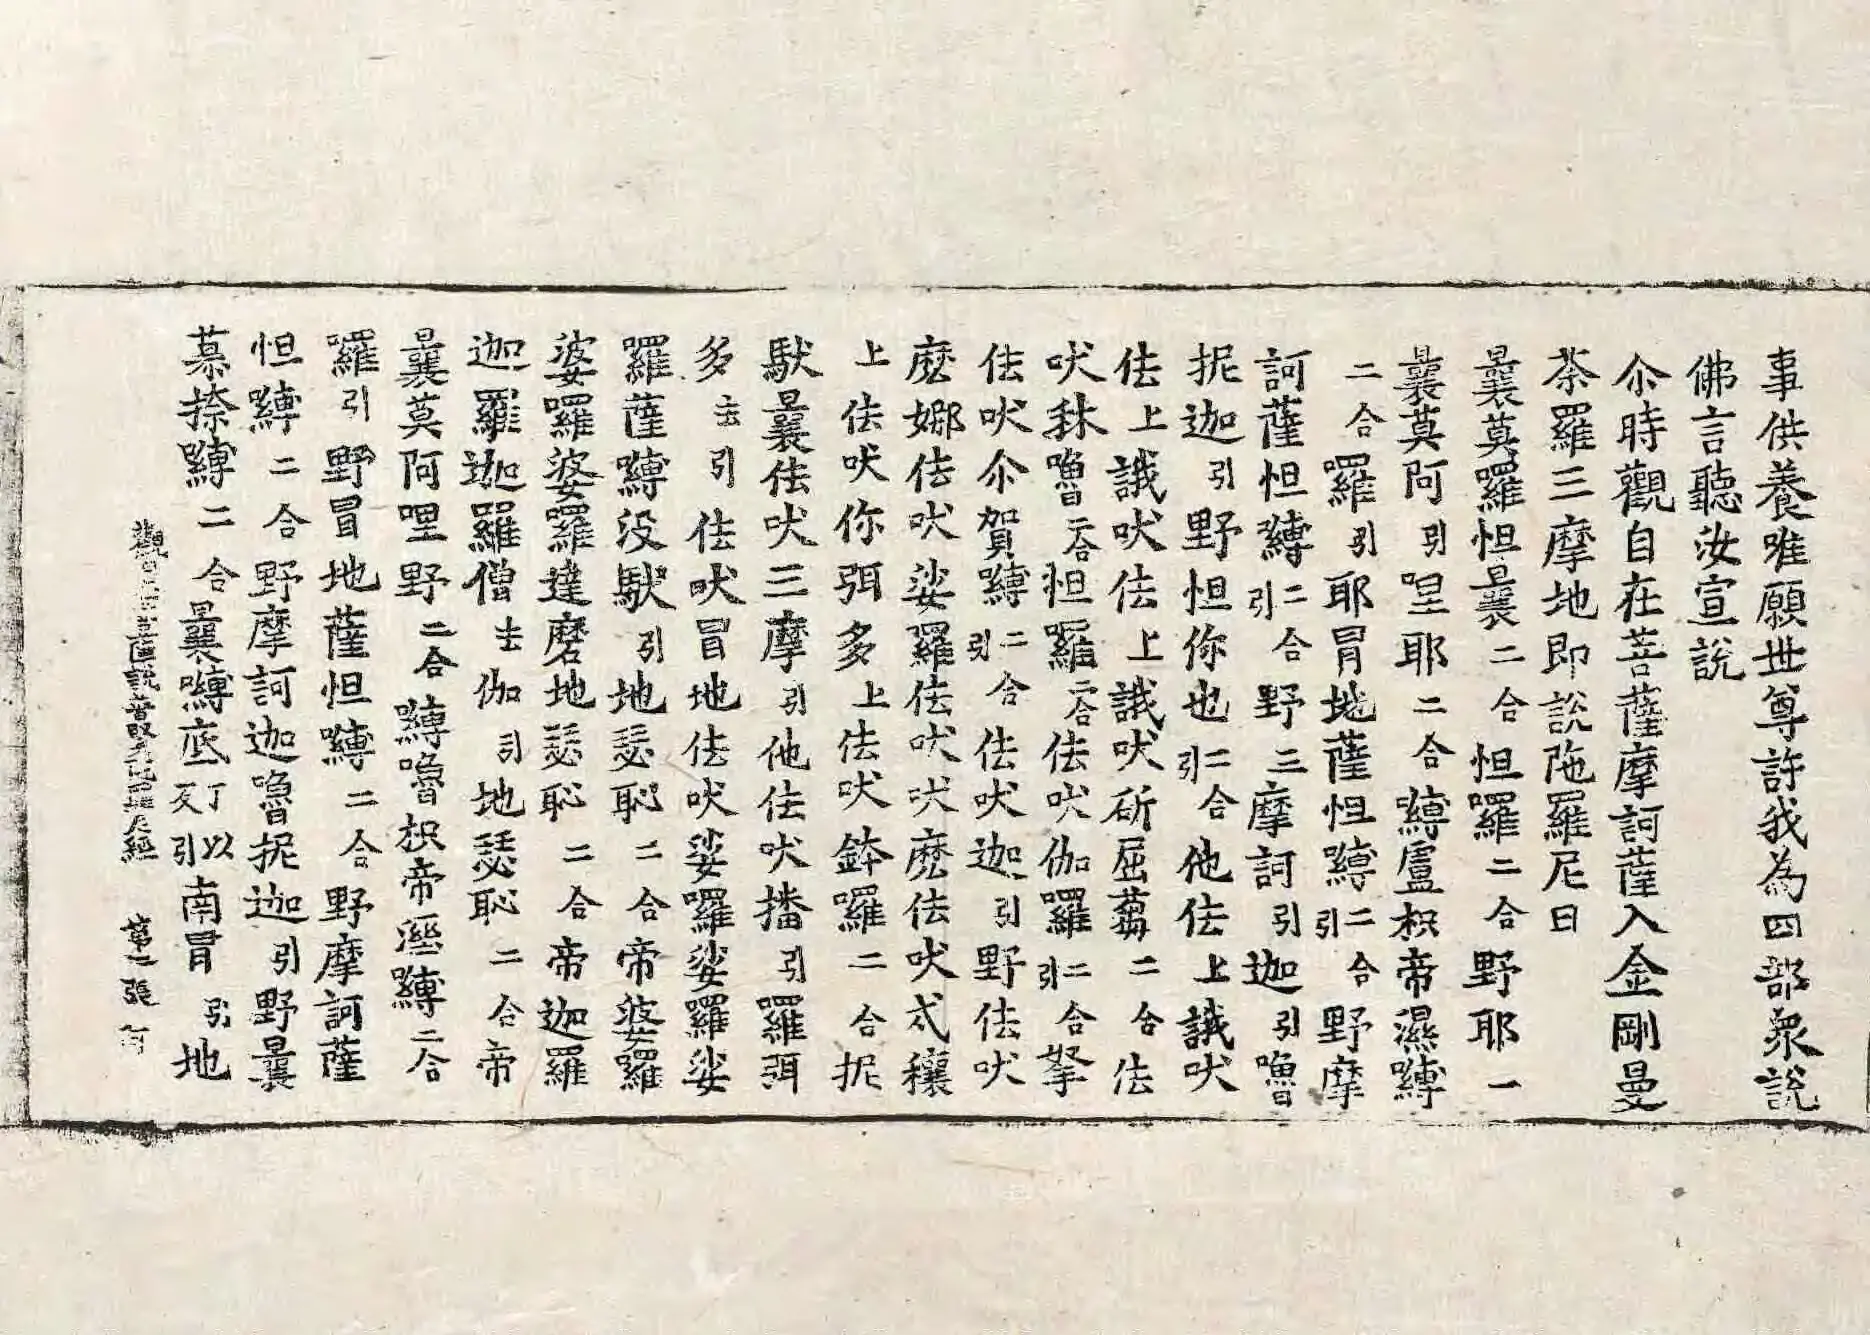 事供養唯願世尊許我為四部眾說
佛言聽汝宣說
尒時觀自在菩薩摩訶薩入金剛曼
荼羅三摩地即說陁羅尼曰
曩莫囉怛曩二合怛囉二合野耶一
曩莫阿引哩耶二合嚩盧枳帝濕嚩
二合囉引耶冒地薩怛嚩二合引野摩
訶薩怛嚩二合引野三摩訶引迦引嚕
抳迦引野怛你也二合引他佉上誐吠
佉上誐吠佉上誐吠斫屈蒭二合佉
吠秫嚕二合怛羅二合佉吠伽囉二合引拏
佉吠尒賀嚩二合引佉吠迦引野佉吠
麼娜佉吠娑羅佉吠吠麼佉吠忒穰
上佉吠你弭多上佉吠鉢羅二合抳
馱曩佉吠三摩引他佉吠播引囉弭
多去引佉吠冒地佉吠娑囉娑羅娑
羅薩嚩没馱引地瑟恥二合帝婆囉
婆囉婆囉達磨地瑟恥二合帝迦羅
迦羅迦羅僧去伽引地瑟恥二合帝
曩莫阿哩野二合嚩嚕枳帝溼嚩二合
囉引野冒地薩怛嚩二合野摩訶薩
怛嚩二合野摩訶迦嚕抳迦引野曩
慕捺嚩二合曩嚩底丁以反引南冒引地
觀 薩說普 陁 尼經 第二張